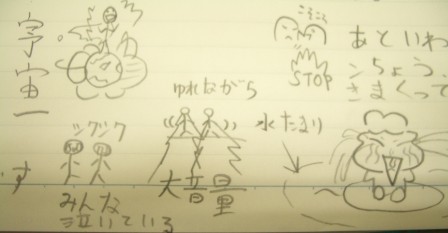 宇宙一
ころころ
STOP
あといわ
んちょう
さまくって
ゆれながら
シクシク
水たまり
大音量
す
みんな
泣いている